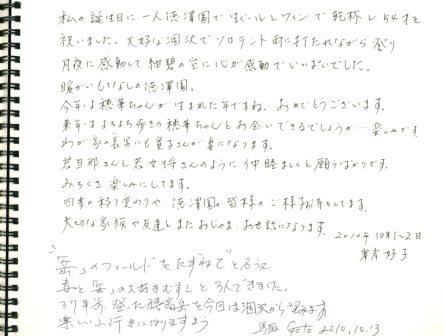 私の誕生日に一人徳澤園でビールとワインで乾杯し54才を
祝いました。大好な涸沢でソロテント雨に打たれながら登り
月夜に感動して紺碧の空に心が感動でいっぱいでした。
暖かいもてなしの徳澤園。
今年は穂華ちゃんがうまれた年ですね。おめでとうございます。
来年はよちよち歩きの穂華ちゃんとお会いできるでしょうか…楽しみです。
わが家の長男にも寛子さんが妻になります。
若旦那さんと若女将さんのように仲睦ましくと願うばかりです。
みちくさ楽しみにしてます。
四季の移り変わりや徳澤園の皆様のご様子が
大切な家族や友達とまたおじゃま、お世話になります。
2010年10月1~2日
好子
「岳」のフィールドをたずねて
妻と「岳」の大好きなむすこと3人できました。
37年前、登った穂高岳を今回は涸沢から
楽しい山行きになりますよう
Goto 2010.10.13